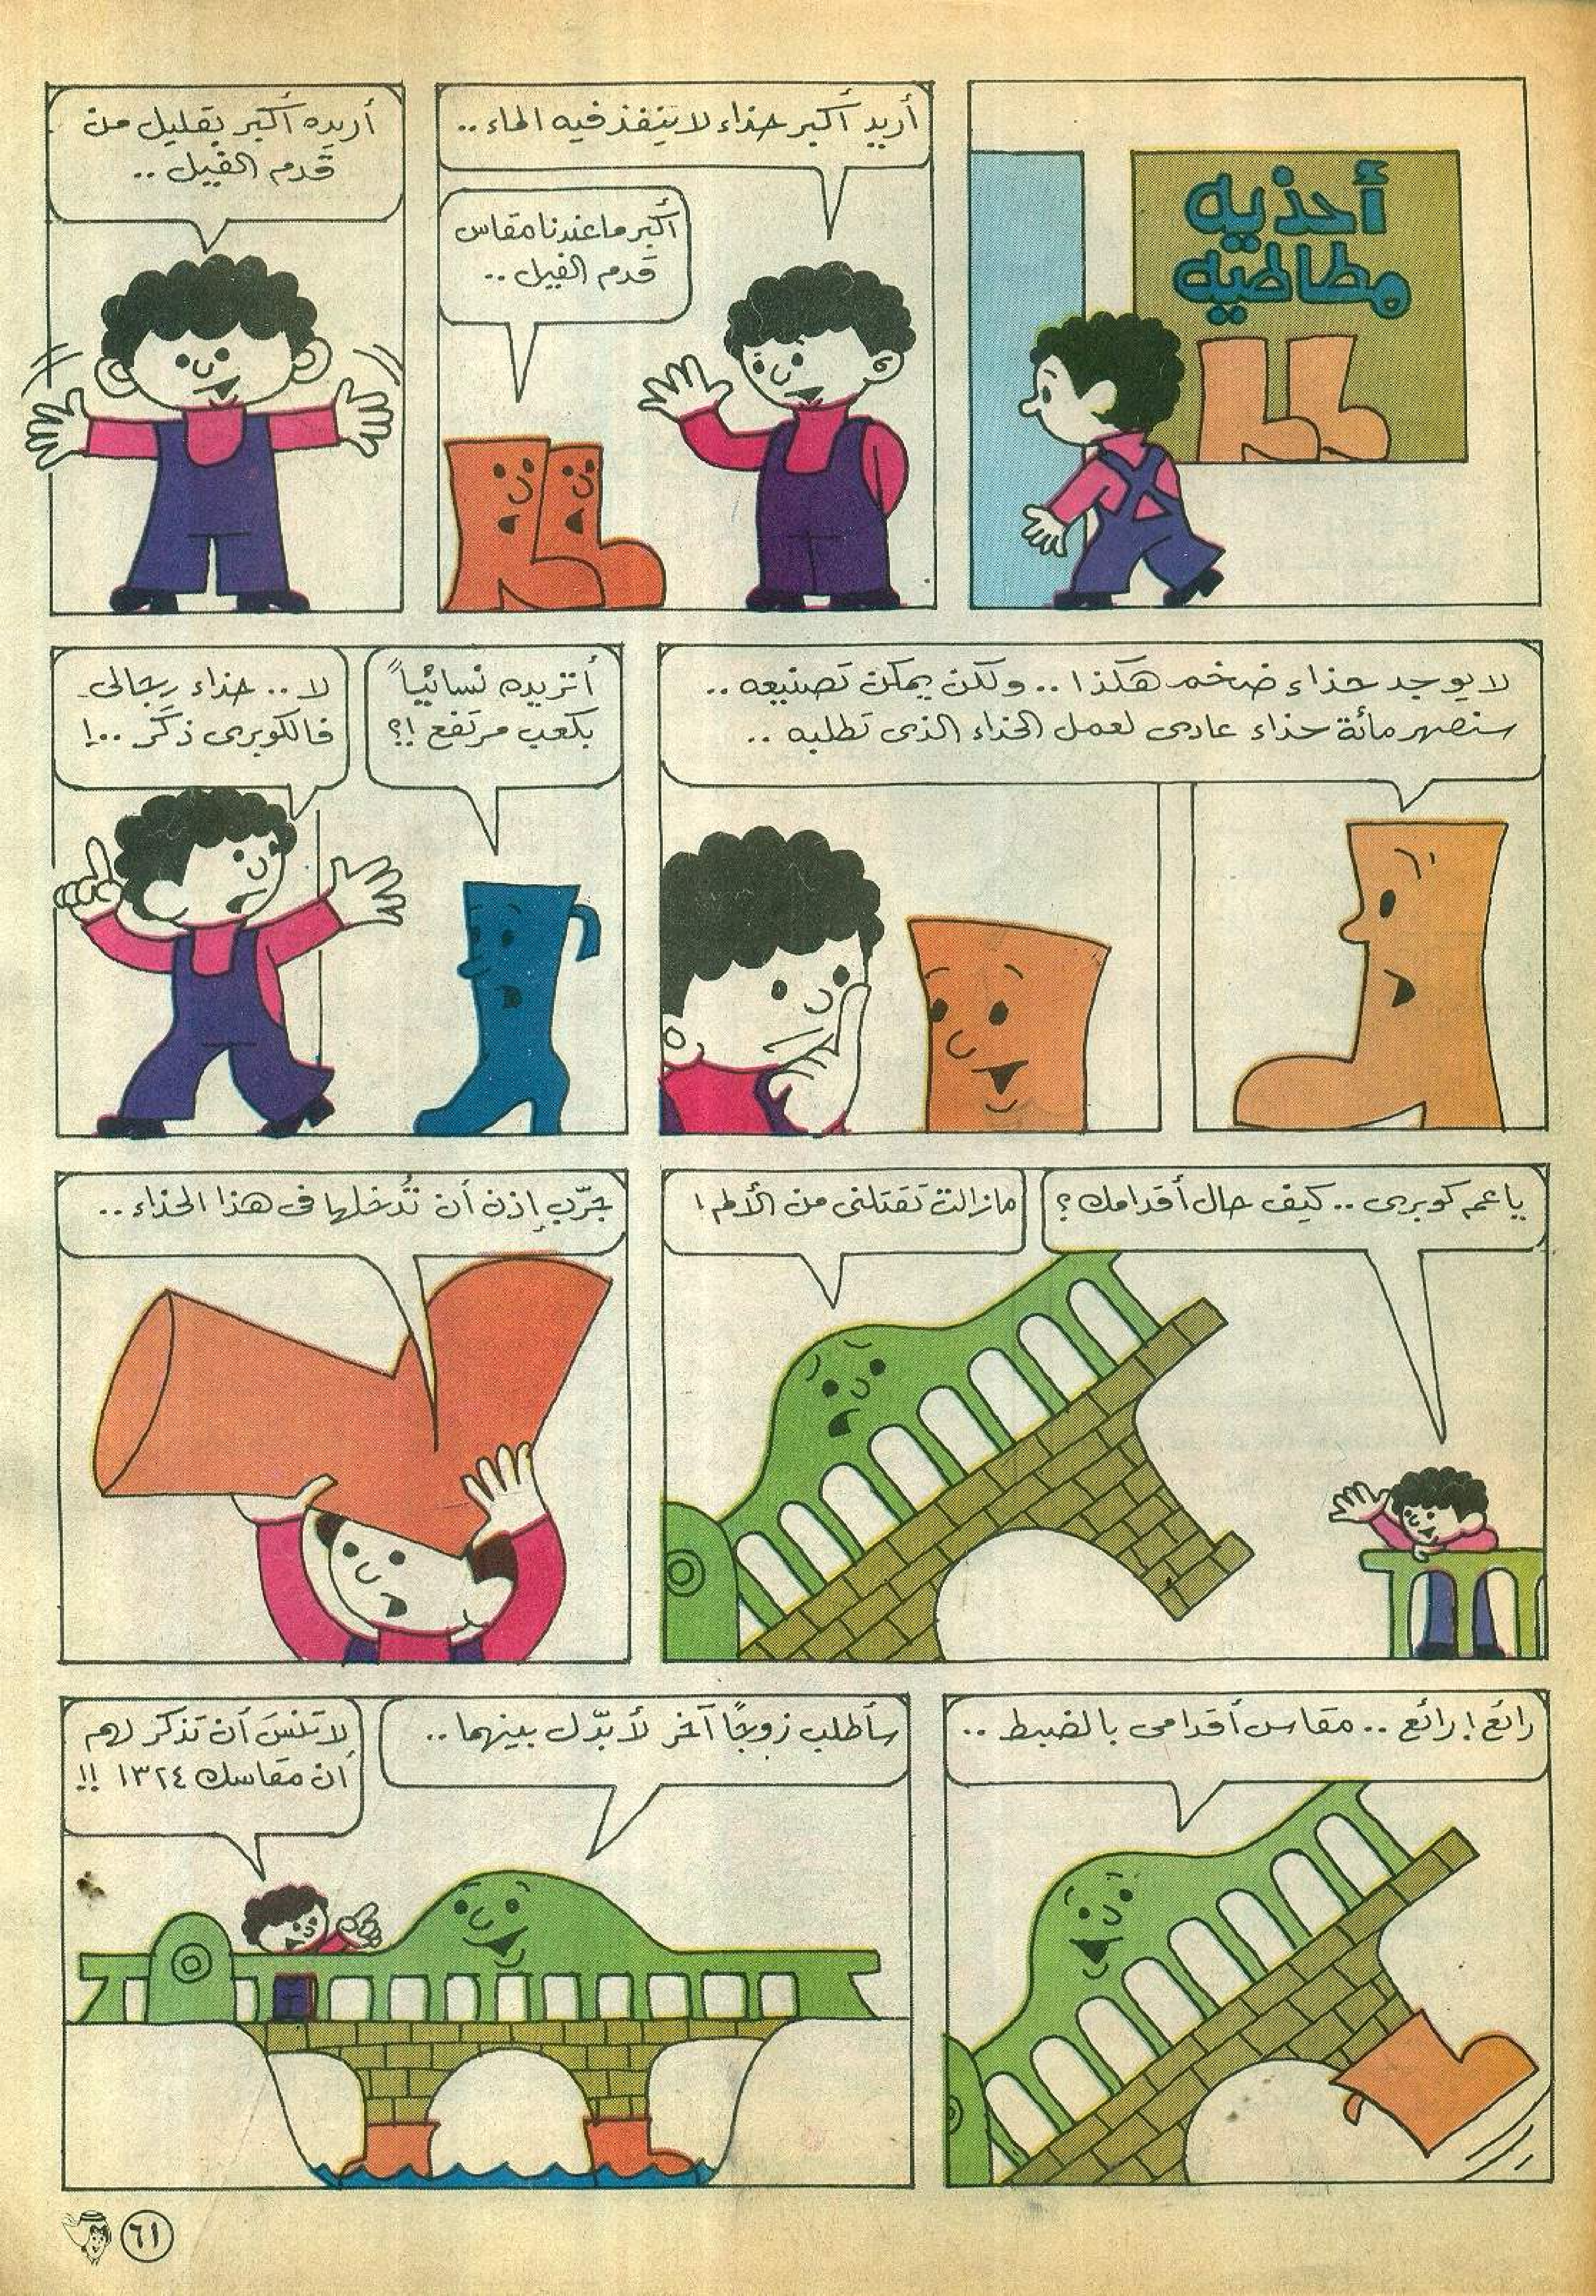 أحذيه
مطاطيه
أريد أكبر حذاء لا ينفذ فيه الماء ..
أكبر ما عندنا مقاس
قدم الفيل ..
أريده أكبر بقليل من
قدم الفيل ..
لا يوجد حذاء ضخم هكذا .. ولكن يمكن تصنيعه ..
سنصهر مائة حذاء عادى لعمل الحذاء الذى تطلبه ..
أتريده نسائيّاً
بكعب مرتفع !؟
لا .. حذاء رجالى
فالكوبرى ذكر ..!
يا عم كوبرى .. كيف حال أقدامك ؟
مازالت تقتلنى من الألم !
جرّب إذن أن تُدخلها فى هذا الحذاء ..
رائع ! رائع .. مقاس أقدامى بالضبط ..
سأطلب زوجًا آخر لأبدّل بينهما ..
لا تنسَ أن تذكر لهم
أن مقاسك ١٣٢٤ !!
٦١